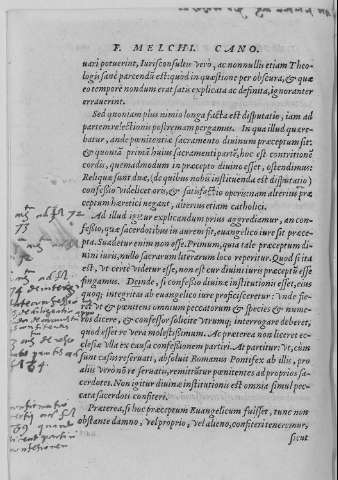 F. MELCHI. CANO.
uari potuerint, Iurisconsultis verò, ac nonnullis etiam Theo-
logis sanè parcendũ est: quòd in quæstione per obscura, & quæ
eo tempore nondum erat satis explicata ac definita, ignoranter
errauerint.
Sed quoniam plus nimio longa facta est disputatio, iam ad
partem relectionis postremam pergamus. In qua illud quære-
batur, an de pœnitentiæ sacramento diuinum præceptum sit:
& quoniã primã huius sacramenti partẽ, hoc est contritionẽ
cordis, quemadmodum in præcepto diuino esset, ostendimus:
Reliquæ sunt duæ, (de quibus nobis instituenda est disputatio)
confessio videlicet oris, & satisfactio operis: nam alterius præ
ceptum hæretici negant, alterius etiam catholici.
Ad illud igitur explicandum prius aggrediamur, an con-
fessio, quæ sacerdotibus in aurem fit, euangelico iure sit præce-
pta. Suadetur enim non esse. Primum, quia tale præceptum di-
uini iuris, nullo sacrarum literarum loco reperitur. Quod si ita
est, vt certè videtur esse, non est cur diuini iuris præceptũ esse
fingamus. Deinde, si confessio diuinæ institutionis esset, eius
quoq; integritas ab euangelico iure proficisceretur: vnde fie-
ret vt & pœnitens omnium peccatorum & species & nume-
ros dicere, & confessor solicitè vtrumq; interrogare deberet,
quod esset re vera molestissimum. Ac præterea non liceret ec-
clesiæ vlla ex causa confessionem partiri. At partitur: vt, cùm
sunt casus reseruati, absoluit Romanus Pontifex ab illis, pro
aliis verò nõ re seruatis, remittitur pœnitentes ad proprios sa-
cerdotes. Non igitur diuinæ institutionis est omnia simul pec-
cata sacerdoti confiteri.
Præterea, si hoc præceptum Euangelicum fuisset, tunc non
obstante damno, vel proprio, vel alieno, confiteri teneremur,
sicut
72
73
74